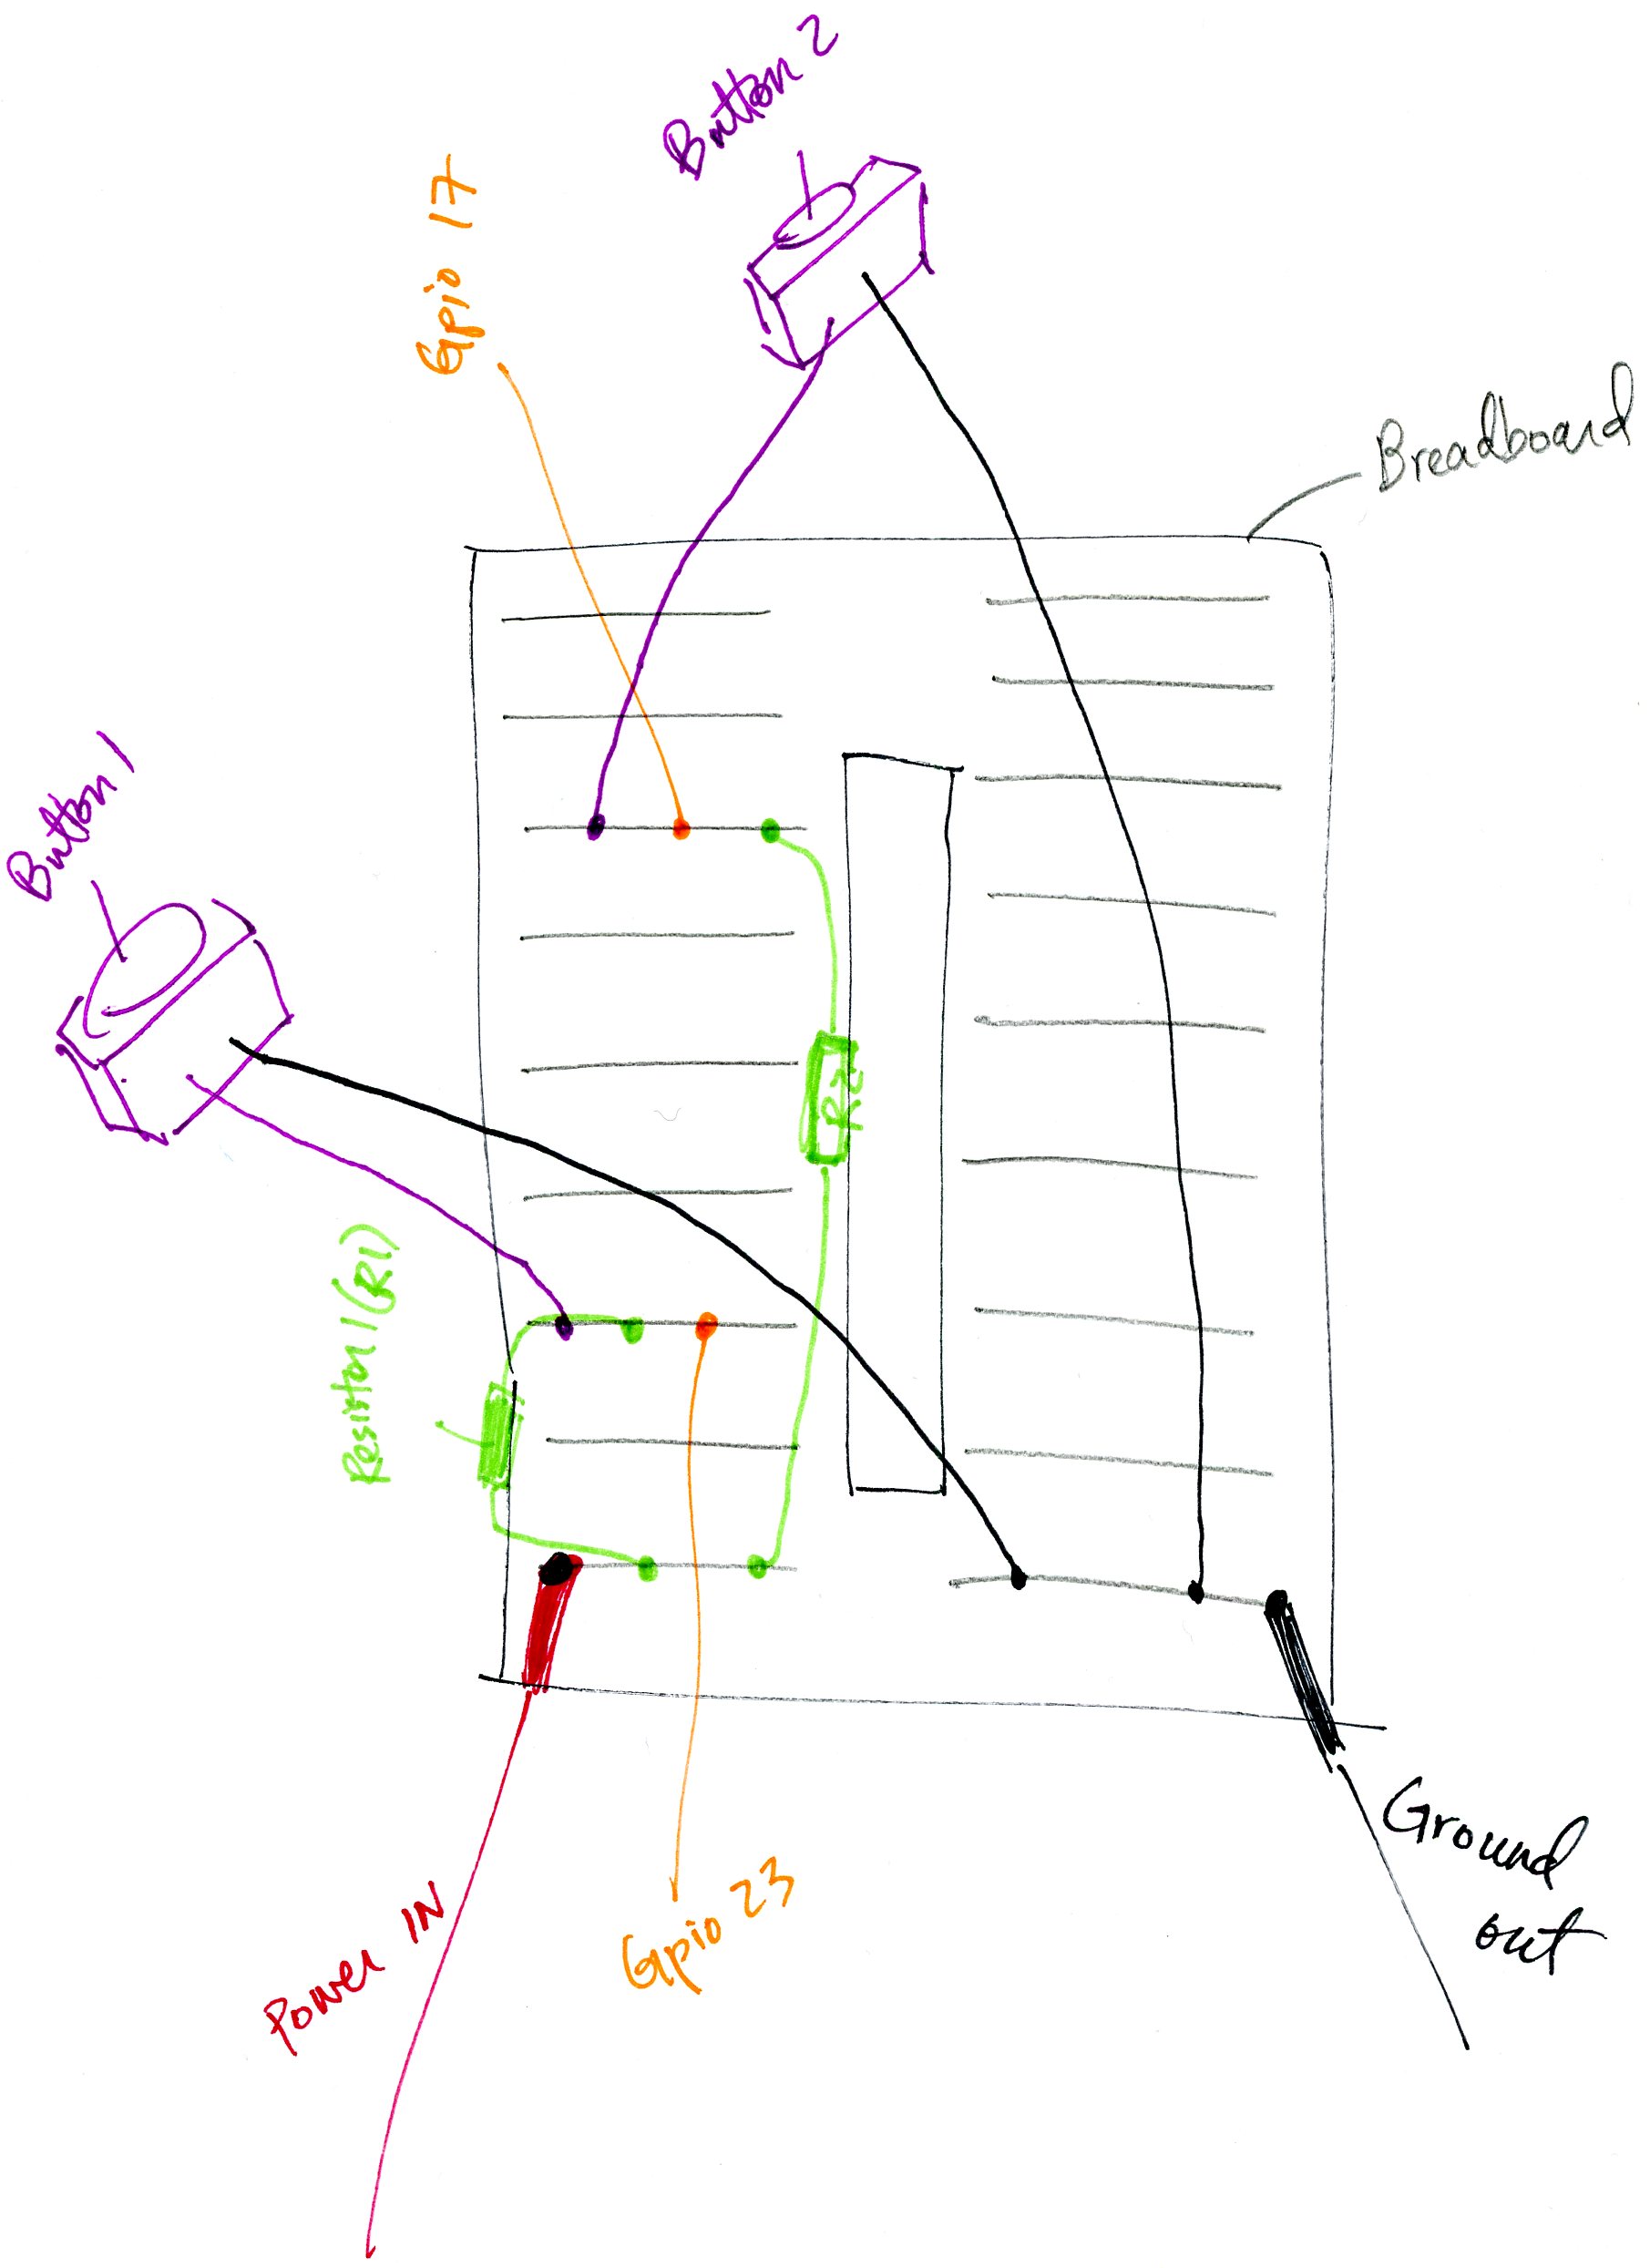 Button 2
Gpio 17
Breadboard
Button 1
R2
Resistor 1 (R1)
Ground
out
Gpio 23
Power IN